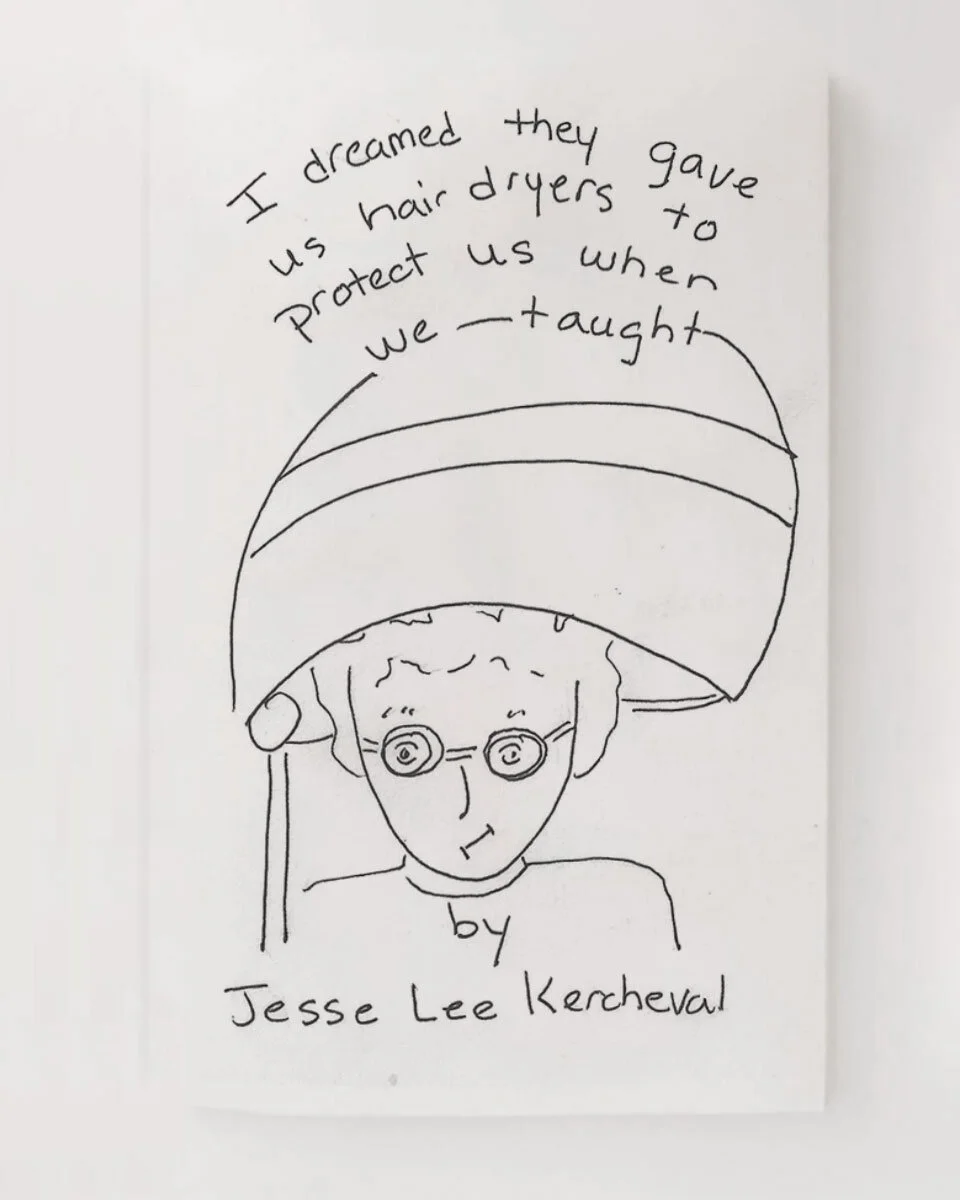 I dreamed they gave
us hair dryers to
protect us when
we taught
by
Jesse Lee Kercheval